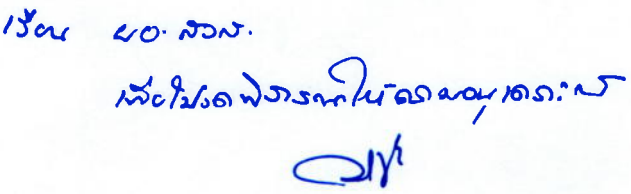 เรียน ผอ. สวส.
เพื่อโปรดพิจารณาให้ความอนุเคราะห์